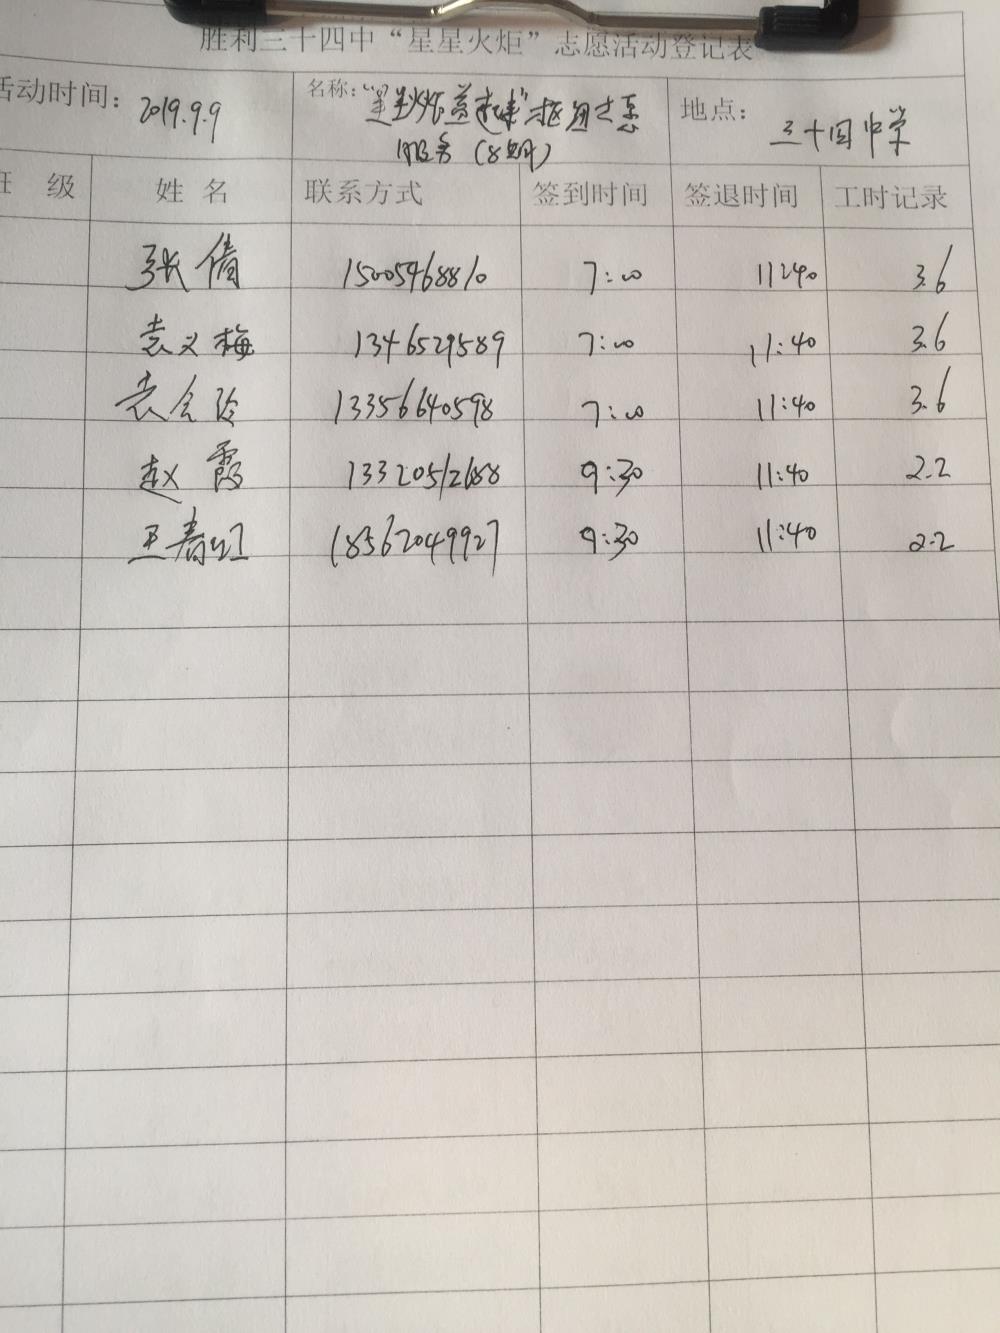 胜利三十四中“星星火炬”志愿活动登记表
活动时间： 2019.9.9 名称： 地点： 三十四中学
服务（8 
级 姓 名 联系方式 签到时间 签退时间 工时记录
张倩 15005468810 7:00 11:40 3.6
袁义梅 1346529589 7:00 11:40 3.6
袁会玲 13356640598 7:00 11:40 3.6
赵霞 13320512688 9:30 11:40 2.2
王春红 18562049927 9:30 11:40 2.2